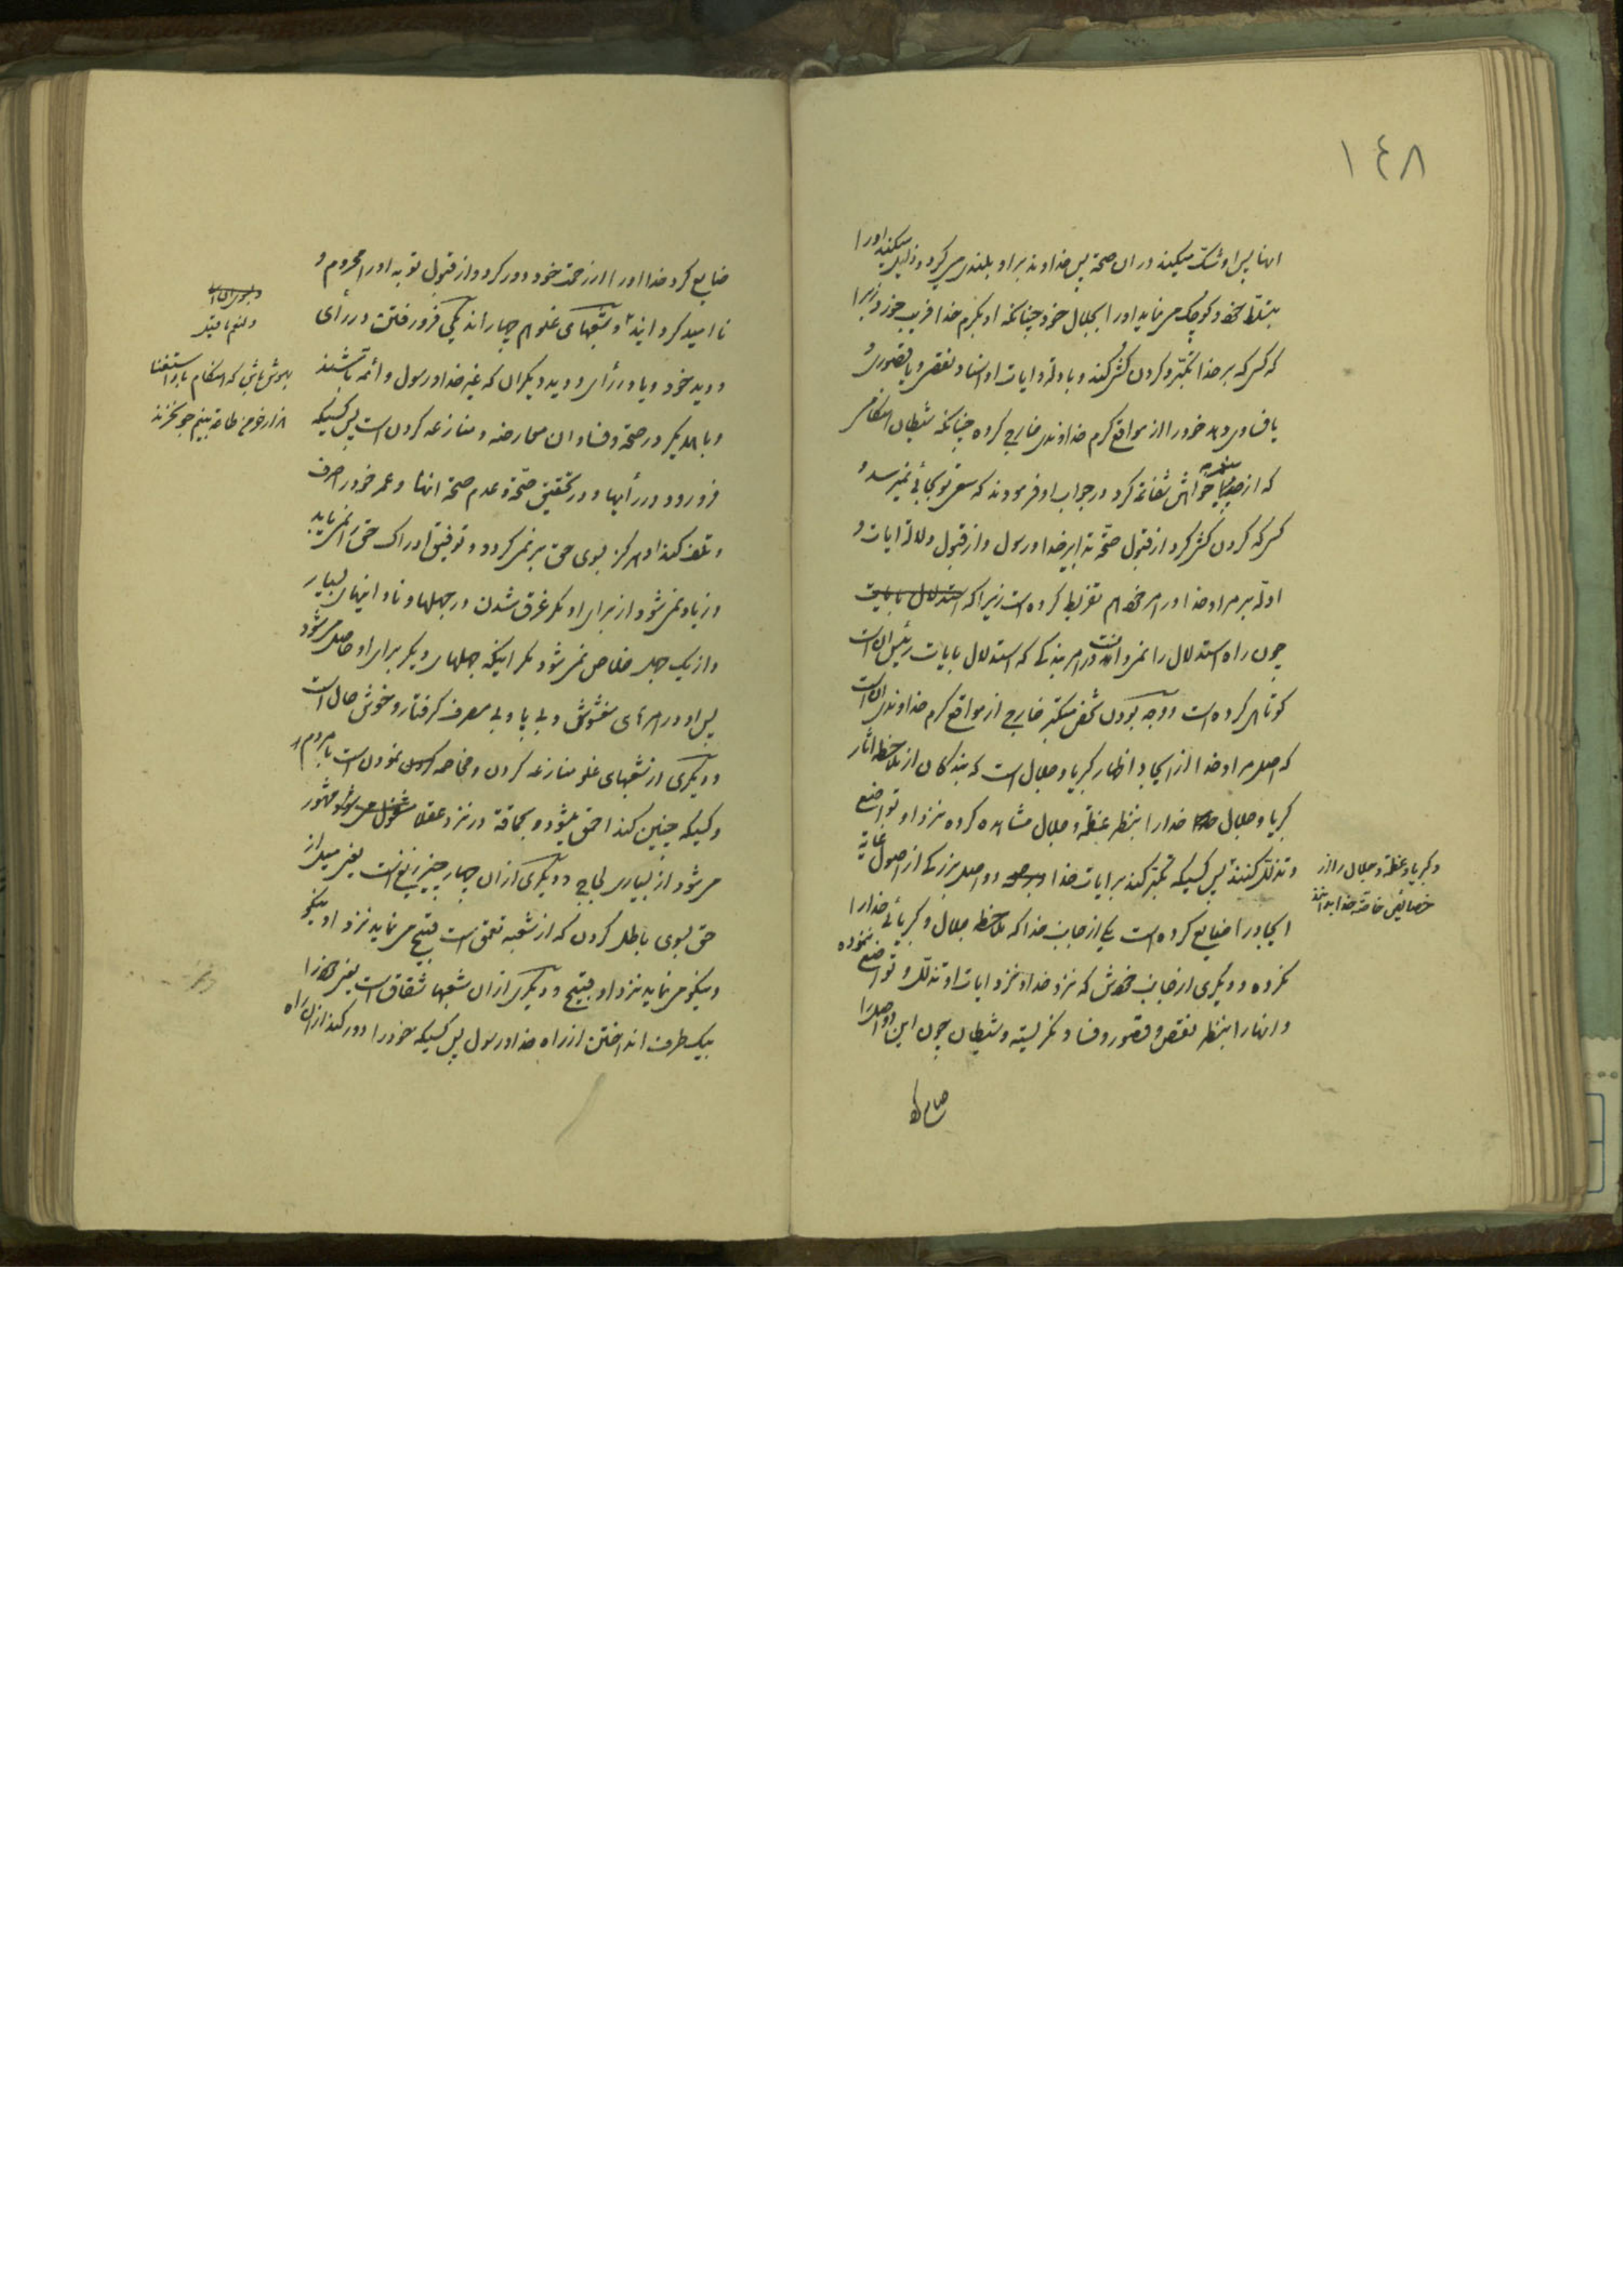 ١٤٨
انها پس او شک میکند در ان صحة پس خداوند بر او بلندی میگیرد و ذلیل میکند او را
بتسلط خود و کوچک می نماید او را بجلال خود چنانکه او بکرم خدا فریب خورد زیرا
که کسی که بر خدا تکبر و کردن کشی کند و با وله و ایات او اسناد نقص و یا قصوری و
یا فسادی دهد خود را از مواقع کرم خداوندی خارج کرده چنانکه شیطان
که از خواهش شفاعة کرد در جواب او فرمودند که سعی تو بجائی نمیرسد و
کسی که کردن کشی کرد از قبول صحة تدابیر خدا و رسول و از قبول دلالة ایات و
ادله بر مراد خدا در امر خود هم تفریط کرده است زیرا که استدلال بایات
چون راه استدلال را نمی دانست در امر بندکی که استدلال بایات رئیس ان است
کوتاهی کرده است و وجه بودن شخص متکبر خارج از مواقع کرم خداوندی ان است
که اصل مراد خدا از ایجاد اظهار کبریا و جلال است که بندکان از ملاحظه اثار
کبریا و جلال خدا را بنظر عظمة و جلال مشاهده کرده نزد او تواضع
و تذلل کنند پس کسیکه تکبر کند بر ایات خدا دو اصل بزرک از اصول غایة
و کبریا و عظمة و جلال را از
خصایص خاصه خدا بدانند
ایجاد را ضایع کرده است یکی از جانب خدا که ملاحظه جلال و کبریائی خدا را
نکرده و دیکری از جانب خودش که نزد خدا و نزد ایات او تذلل و تواضع ننموده
و انها را بنظر نقص و قصور و فساد نکریسته و شیطان چون این دو اصل را
ضایع کرد
ضایع کرد خدا او را از رحمة خود دور کرد و از قبول توبه او را محروم و
نا امید کردانید و شعبهای غلو هم چهار اند یکی فرو رفتن در رأی
و دید خود و یا در رأی و دید دیکران که غیر خدا و رسول و ائمه باشند
و با همدیکر در صحة و فساد ان معارضه و منازعه کردن است پس کسیکه
بهوش باش که هنکام باد استغنا
هزار خرمن طاعة بنیم جو نخرند
فرو رود در رأیها و در تحقیق صحة و عدم صحة انها و عمر خود را صرف
و تلف کند او هرکز بسوی حق بر نمی کردد و توفیق ادراک حق را نمی یابد
و زیاد نمی شود از برای او مکر غرق شدن در جهلها و نادانیهای بسیار
و از یک جهل خلاص نمی شود مکر اینکه جهلهای دیکر برای او حاصل می شود
پس او در امرهای مغشوش و بی پا و بی مصرف کرفتار و خوش حال است
و دیکری از شعبهای غلو منازعه کردن و مخاصمه نمودن است با مردم
و کسیکه چنین کند احمق میشود و بحماقة در نزد عقلا مشهور
می شود از بسیاری لجاج و دیکری از ان چهار چیز زیغ است یعنی میل از
حق بسوی باطل کردن که از شعبه تعمق است قبیح می نماید نزد او نیکو
و نیکو می نماید نزد او قبیح و دیکری از ان شعبها شقاق است یعنی خود را
بیک طرف انداختن از راه خدا و رسول پس کسیکه خود را دور کند از ان راه